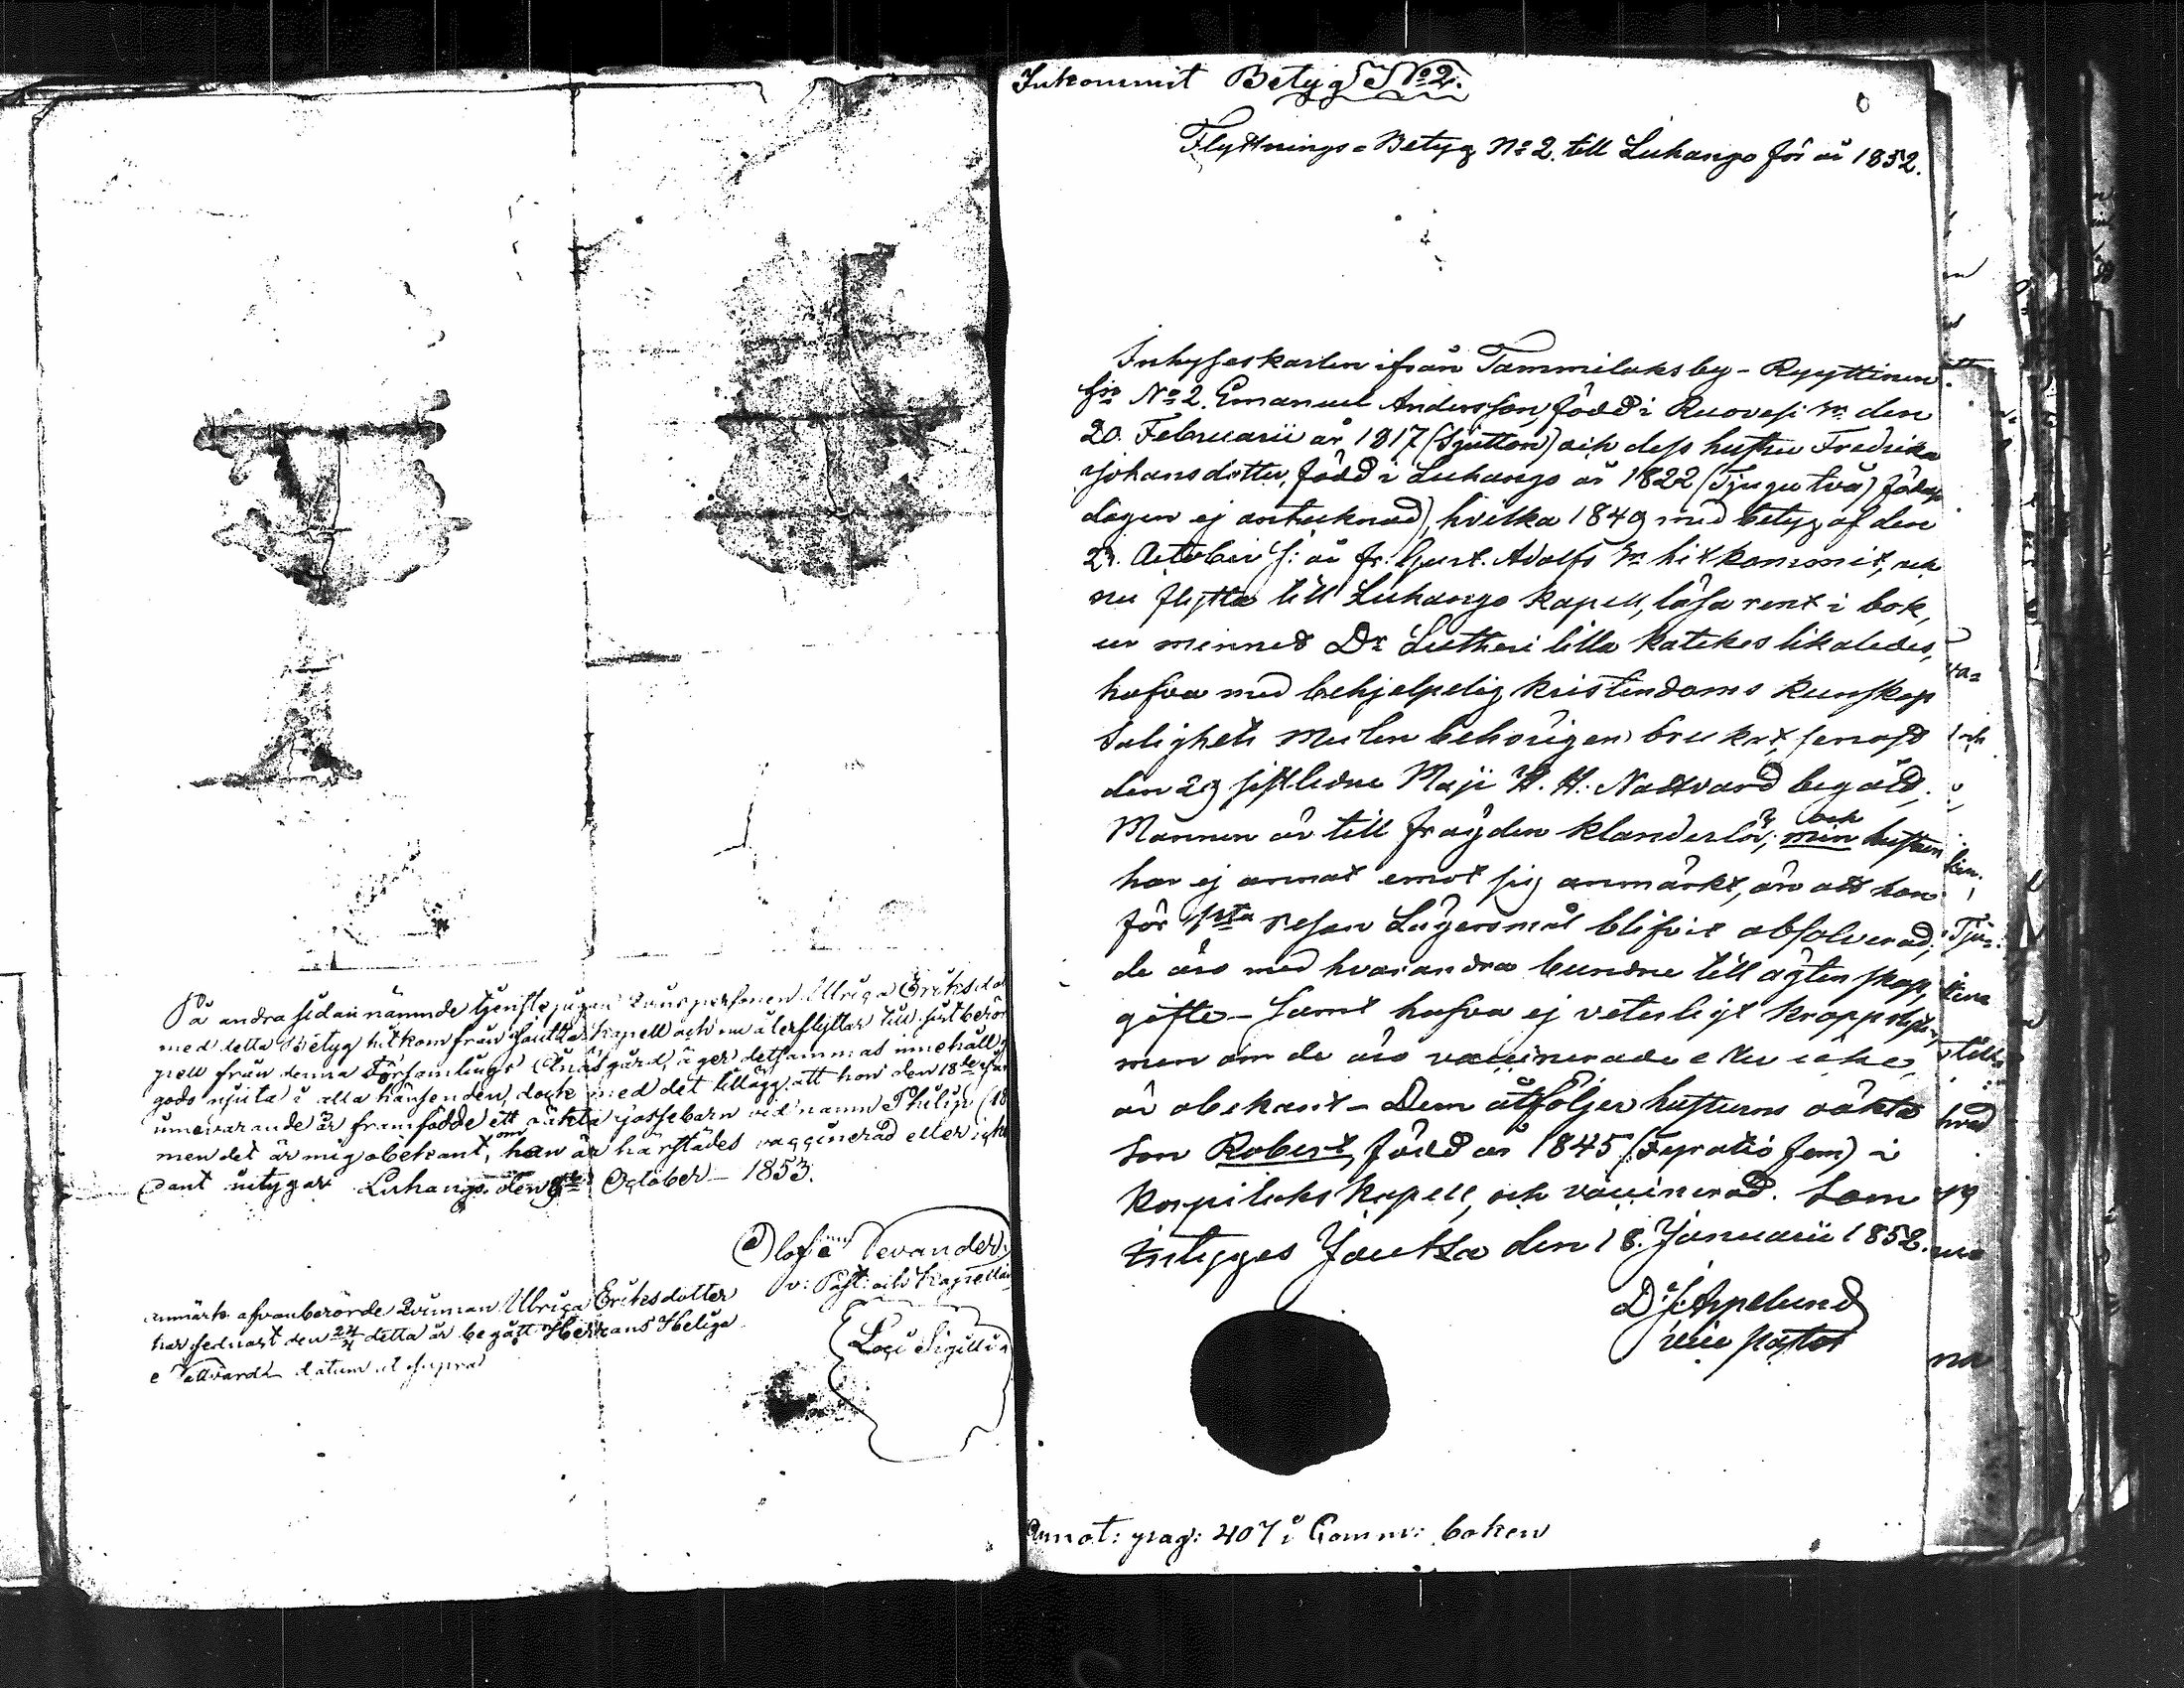 På andra sidan nämnde tjenstepigan Qvinspersonen Ulrica Eriksdot
med detta Betyg hitkom från Joutsa Kapell och nu återflyttar till sist berör
pell från denna Församlings gård, äger detsammas innehåll
godo njuta i alla hänseenden, dock med det tillägg att hon den 18de
innevarande år framfödde ett oäkta gossebarn vid namn Philip (18
men det är mig obekant, om han är härstädes vaccinerad eller icke
Sant intygar Luhango den 9de October 1853.
Olof Levander
v: Past: och Kapellan
Loci Sigilli
anmärks ofvanberörde Qvinnan Ulrica Eriksdotter
har sednast den 24/4 detta år begått Herrans Heliga
Nattvard datum ut supra
Inkommit Betyg No 2.
Flyttnings-Betyg No 2. till Luhango för år 1852.
Inhyseskarlen ifrån Tammilaksby - Ryyttinen
No 2. Emanuel Andersson, född i Ruovesi sn den
20. Februarii år 1817 (Sjutton) och dess hustru Fredrika
Johansdotter, född i Luhango år 1822 (Tjugu två) födelse
dagen ej antecknad), hvilka 1849 med betyg af den
23. October s: år fr. Gust. Adolfs sn hitkommit, och
nu flytta till Luhango kapell, läsa rent i bok,
ur minnet Dr Lutheri lilla katekes likaledes,
hafva med behjelpelig kristendoms kunskap
Salighets medlen behörigen brukat, senast
den 29 sistledne Maji H. H. Nattvard begått,
Mannen är till frägden klanderlös, och
min hustrun
har ej annat emot sig anmärkt, än att hon
för 1sta resan Lägersmål blifvit absolverad;
de äro med hvarandra bundne till ägtenskap,
gifte - Samt hafva ej veterligt kroppslyten,
men om de äro vaccinerade eller icke,
är obekant - Dem åtföljer hustruns oäkta
son Robert, född år 1845 (Fyratio fem) i
Korpilaks kapell, och vaccinerad. Som
intygges Joutsa den 18. Januarii 1852.
D: J: Appelund
vice pastor
Annot: pag: 407 i Comm: boken